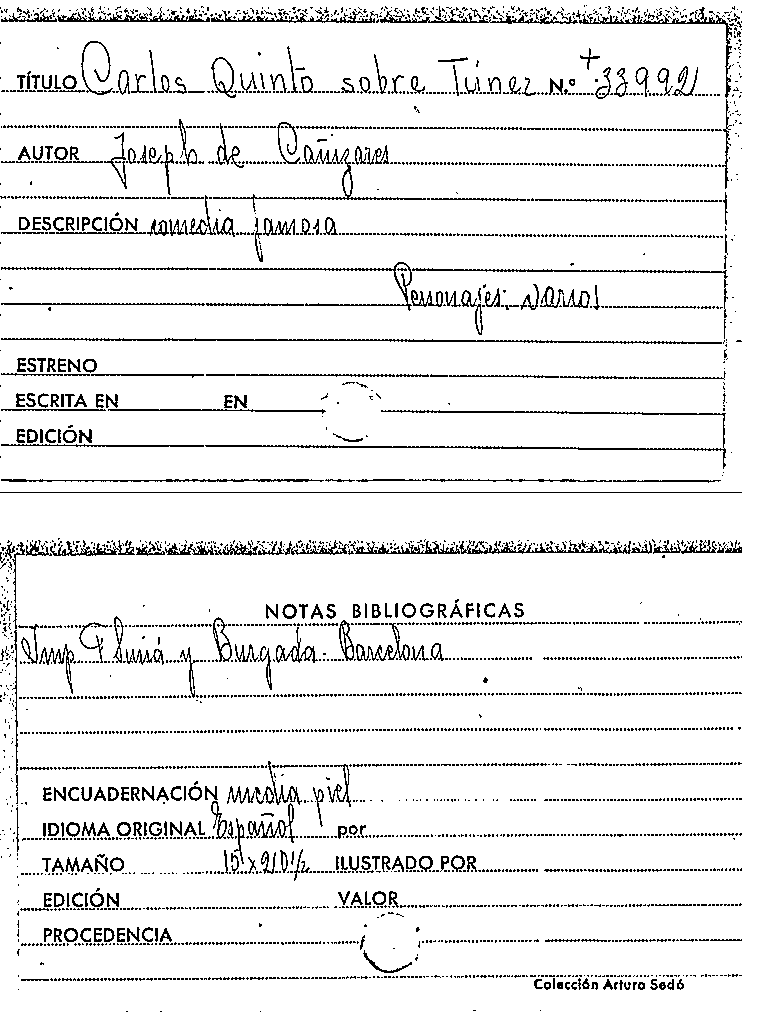 TÍTULO Carlos Quinto sobre Túnez N.º + 33992
AUTOR Joseph de Cañizares
DESCRIPCIÓN comedia famosa
Personajes: varios
ESTRENO
ESCRITA EN EN
EDICIÓN
NOTAS BIBLIOGRÁFICAS
Imp y Burgada. Barcelona
ENCUADERNACIÓN media piel
IDIOMA ORIGINAL Español por
TAMAÑO ILUSTRADO POR
EDICIÓN VALOR
PROCEDENCIA
Colección Arturo Sedó